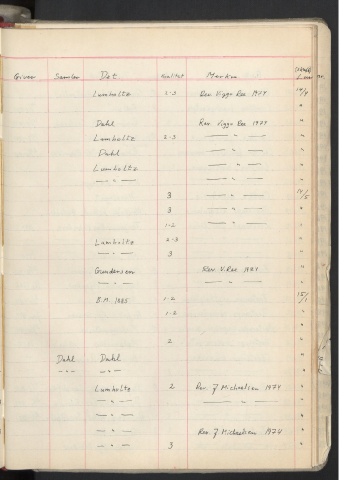 Giver Samler Det Kvalitet Merkn
Lumholtz 2-3 Rev. Viggo Ree 1974 14/4
"
Dahl Rev. Viggo Ree 1977 "
Lumholtz 2-3 — " — "
Dahl — " — "
Lumholtz — " — "
— " — — " — "
3 — " — 14/5
3 — " — "
1-2 — " — "
Lumholtz 2-3 "
— " — 3 "
Gundersen Rev. V. Ree 1984 "
— " — — " — "
B.M. 1885 1-2 15/1
1-2 "
2 "
Dahl Dahl "
— " — — " — "
Lumholtz 2 Rev. J Michaelsen 1974 "
— " — — " — "
— " — "
— " — Rev J Michaelsen 1974 "
— " — 3 "